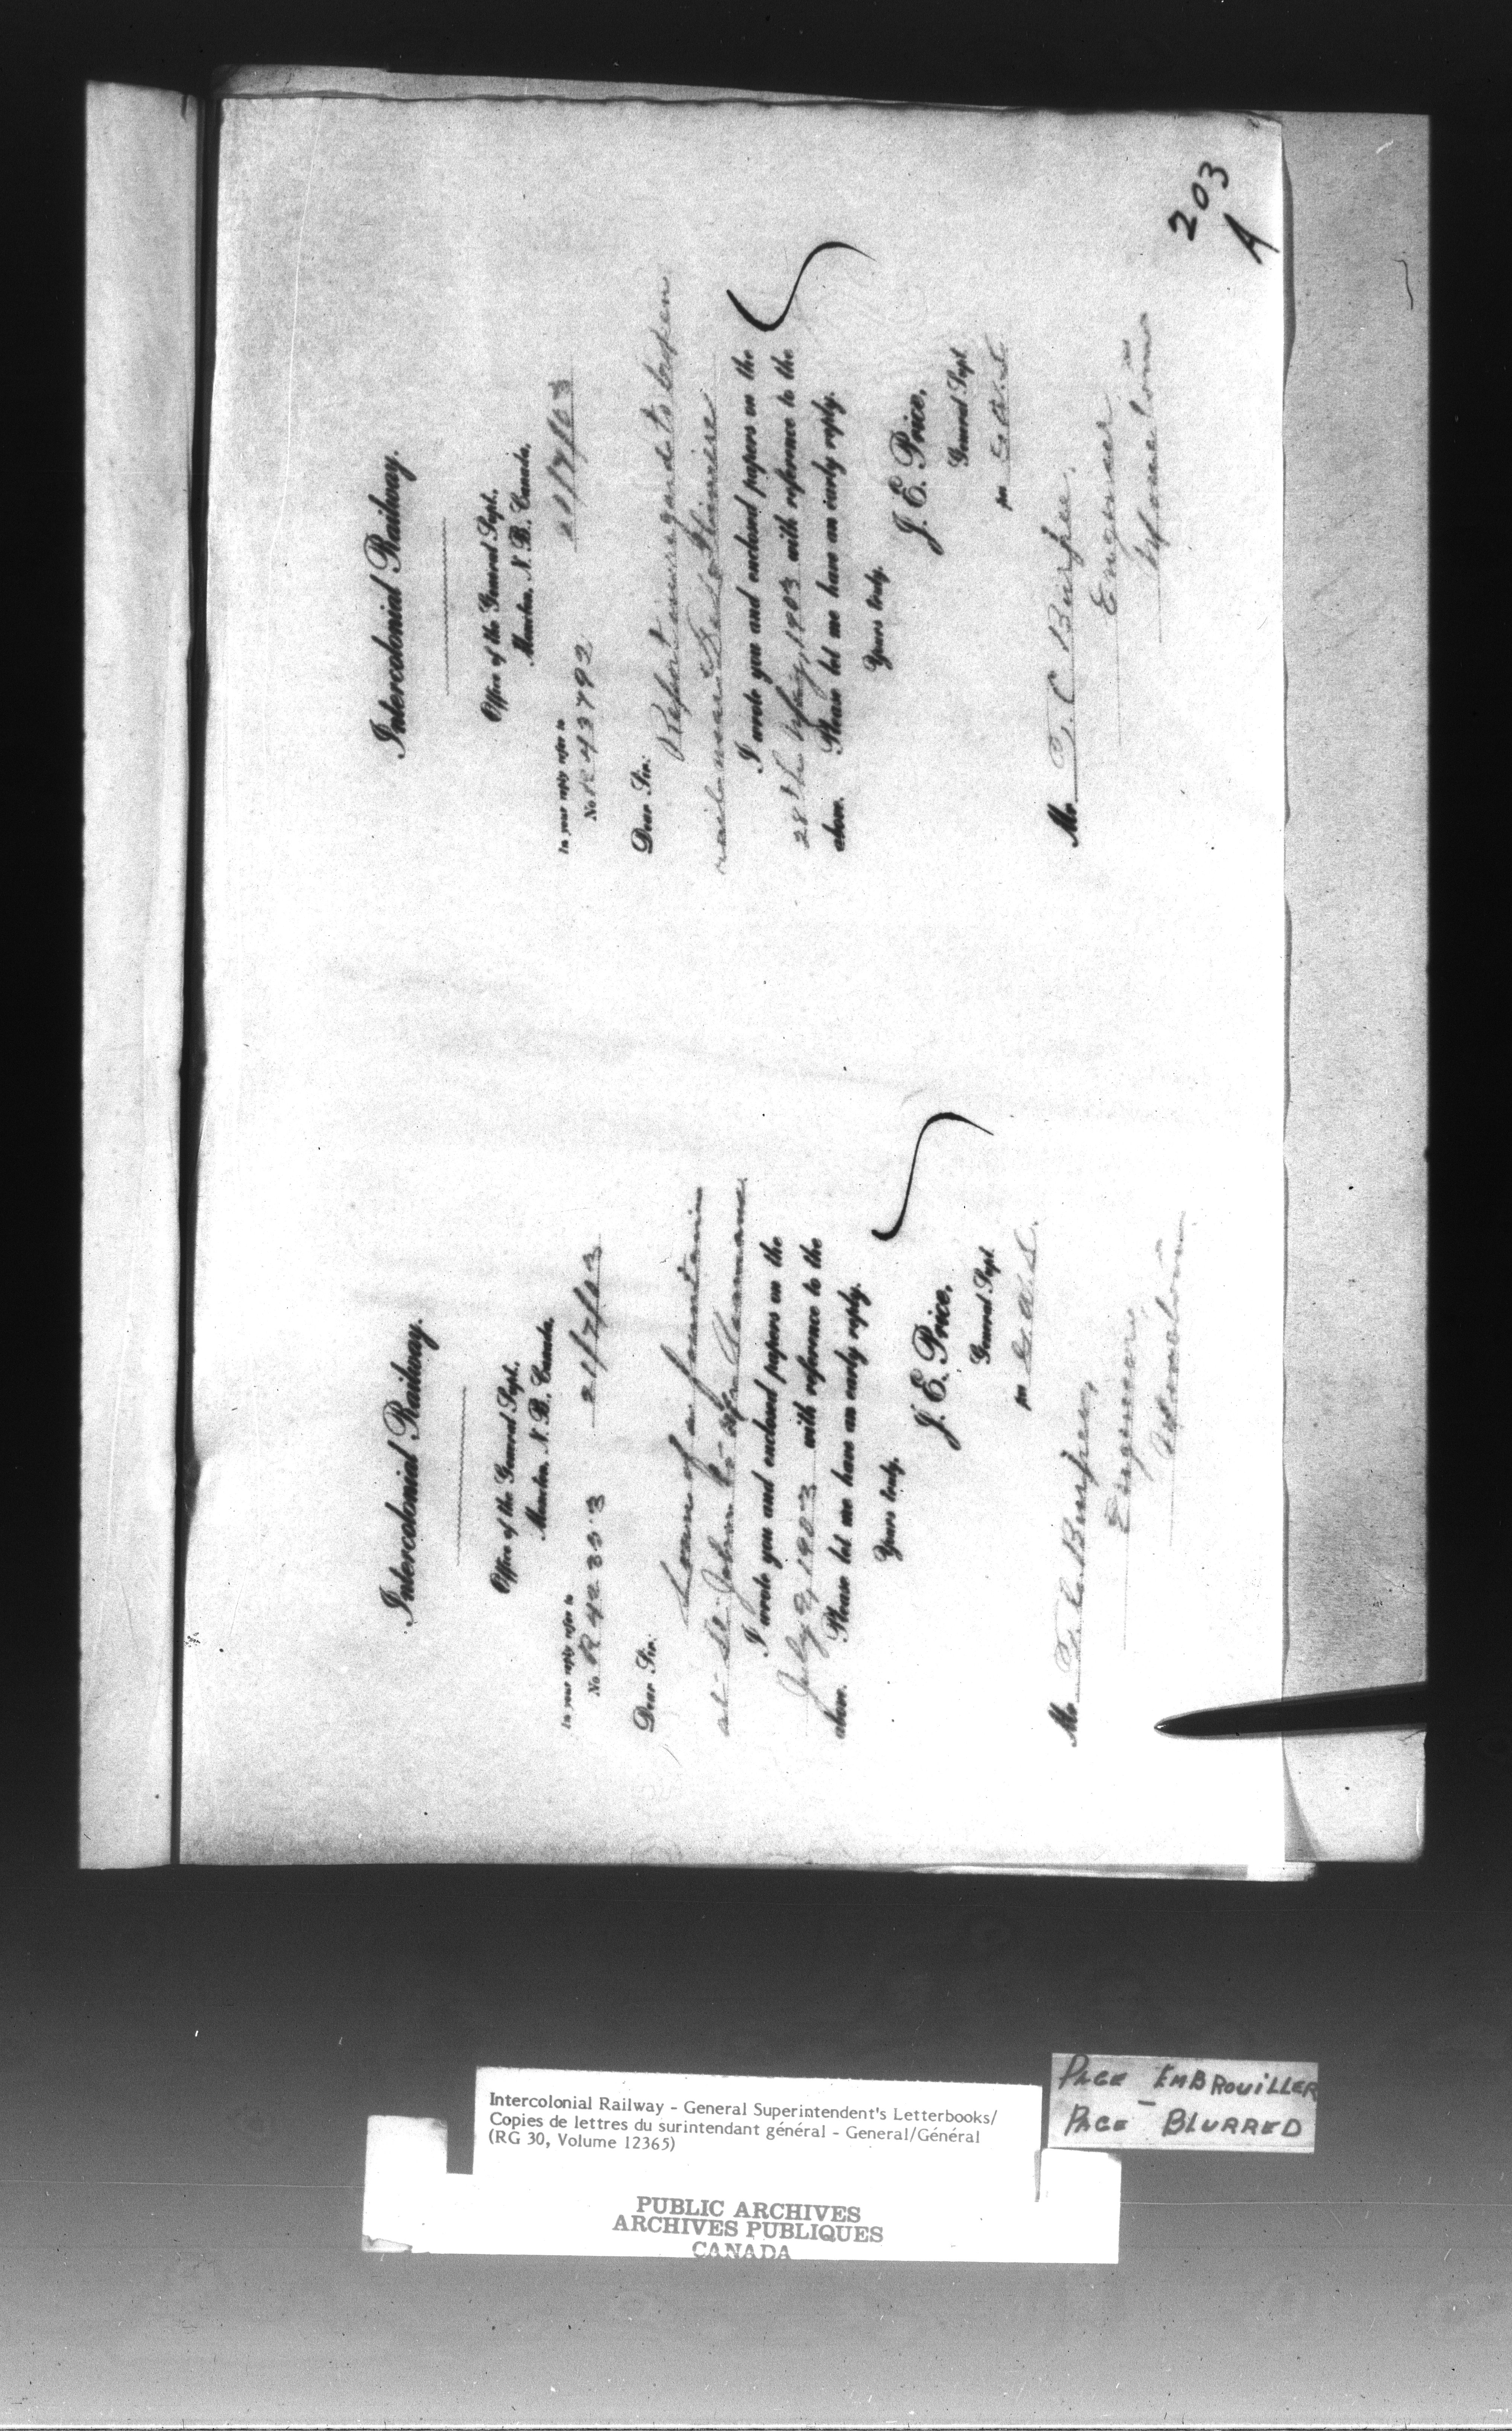 203
A
Intercolonial Railway.
Office of the General Supt.
Moncton, N. B. Canada.
In your reply refer to
No. R 42303 21/7/03
Dear Sir:
Loan of a fountain
at St. John to
I wrote you and enclosed papers on the
July 9, 1903 with reference to the
above. Please let me have an early reply.
Yours truly,
J. E. Price,
General Supt.
per
Mr. T. C. Burpee,
Engineer,
Moncton
Intercolonial Railway.
Office of the General Supt.
Moncton, N. B. Canada.
In your reply refer to
No. R 43792 21/7/03
Dear Sir:
Report in regard to broken
rail near
I wrote you and enclosed papers on the
28th May, 1903 with reference to the
above. Please let me have an early reply.
Yours truly,
J. E. Price,
General Supt.
per
Mr. T. C. Burpee,
Engineer
Moncton
PAGE EMBROUILLER
PAGE BLURRED
Intercolonial Railway - General Superintendent's Letterbooks/
Copies de lettres du surintendant général - General/Général
(RG 30, Volume 12365)
PUBLIC ARCHIVES
ARCHIVES PUBLIQUES
CANADA